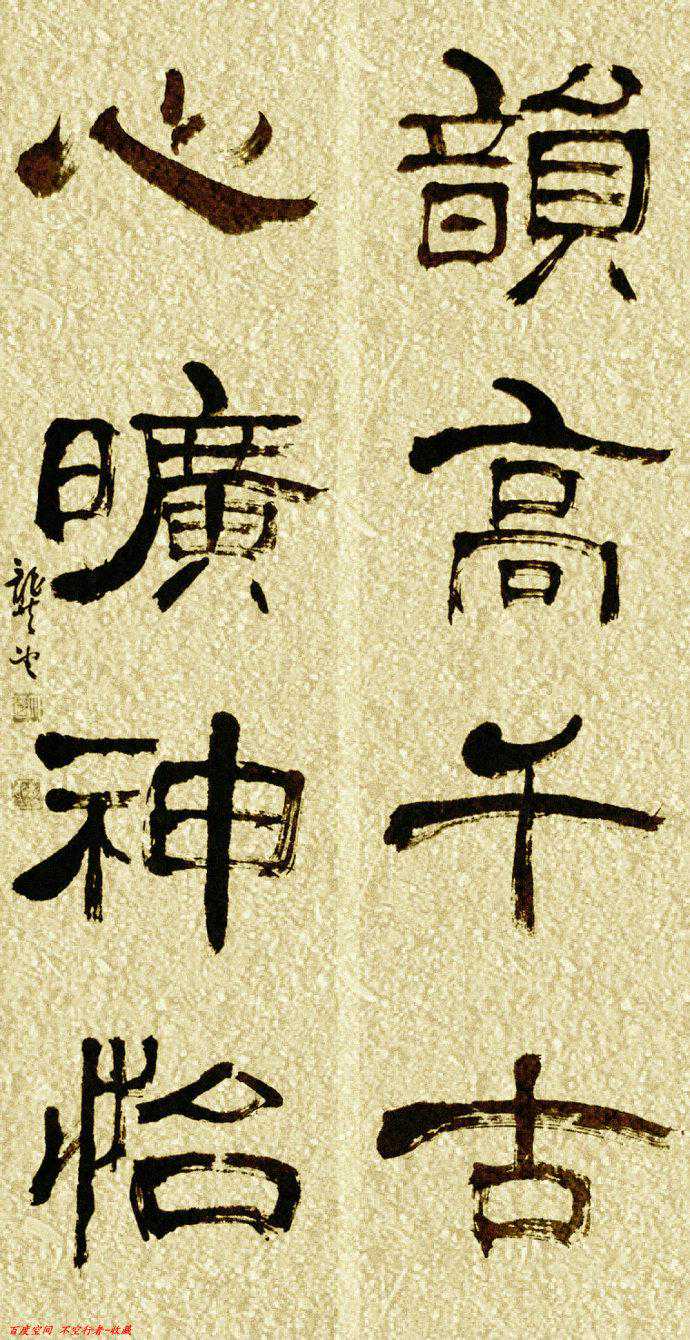 韻高千古
心曠神怡
龔望
百度空间 不空行者-收藏